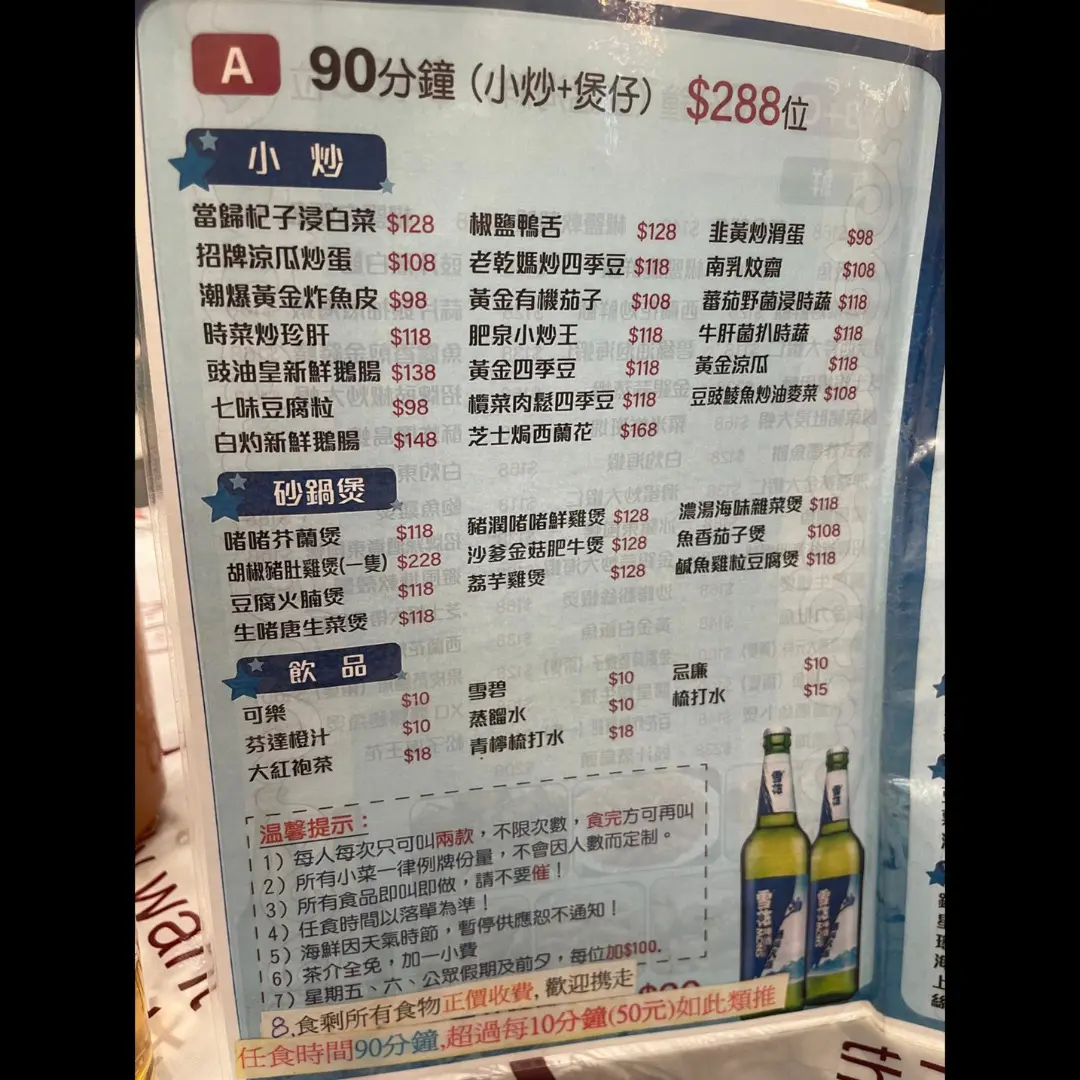 A 90分鐘（小炒+煲仔） $288位
小炒
當歸杞子浸白菜 $128
招牌涼瓜炒蛋 $108
潮爆黃金炸魚皮 $98
時菜炒珍肝 $118
豉油皇新鮮鵝腸 $138
七味豆腐粒 $98
白灼新鮮鵝腸 $148
椒鹽鴨舌 $128
老乾媽炒四季豆 $118
黃金有機茄子 $108
肥泉小炒王 $118
黃金四季豆 $118
欖菜肉鬆四季豆 $118
芝士焗西蘭花 $168
韭黃炒滑蛋 $98
南乳炆齋 $108
蕃茄野菌浸時蔬 $118
牛肝菌扒時蔬 $118
黃金涼瓜 $118
豆豉鯪魚炒油麥菜 $108
砂鍋煲
啫啫芥蘭煲 $118
胡椒豬肚雞煲(一隻) $228
豆腐火腩煲 $118
生啫唐生菜煲 $118
豬潤啫啫鮮雞煲 $128
沙爹金菇肥牛煲 $128
荔芋雞煲 $128
濃湯海味雜菜煲 $118
魚香茄子煲 $108
鹹魚雞粒豆腐煲 $118
飲品
可樂 $10
芬達橙汁 $10
大紅袍茶 $18
雪碧 $10
蒸餾水 $10
青檸梳打水 $18
忌廉 $10
梳打水 $15
温馨提示：
1）每人每次只可叫兩款，不限次數，食完方可再叫
2）所有小菜一律例牌份量，不會因人數而定制。
3）所有食品即叫即做，請不要催！
4）任食時間以落單為準！
5）海鮮因天氣時節，暫停供應恕不通知！
6）茶介全免，加一小費
7）星期五、六、公眾假期及前夕，每位加$100.
8.食剩所有食物正價收費, 歡迎携走
任食時間90分鐘,超過每10分鐘(50元)如此類推
雪花
雪花
want